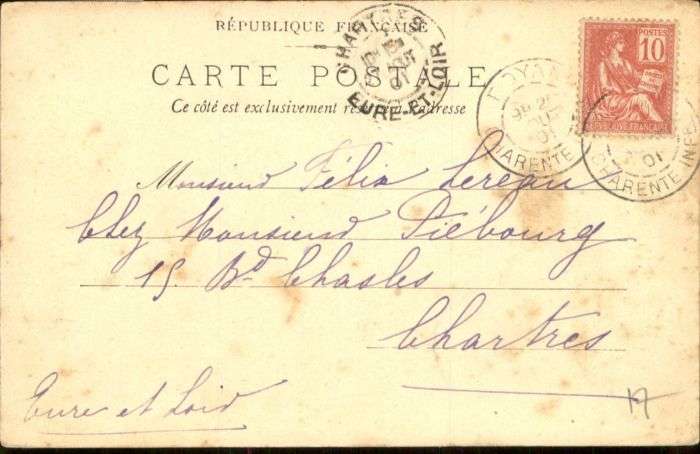 RÉPUBLIQUE FRANÇAISE
CARTE POSTALE
Ce côté est exclusivement réservé à l'adresse
CHARTRES
EURE-ET-LOIR
POSTES
10
RÉPUBLIQUE FRANÇAISE
ROYAN
01
CHARENTE
01
CHARENTE INF
Monsieur Félix Lereau
Chez Monsieur Piébourg
15 Bd Chasles
Chartres
Eure et Loir
17